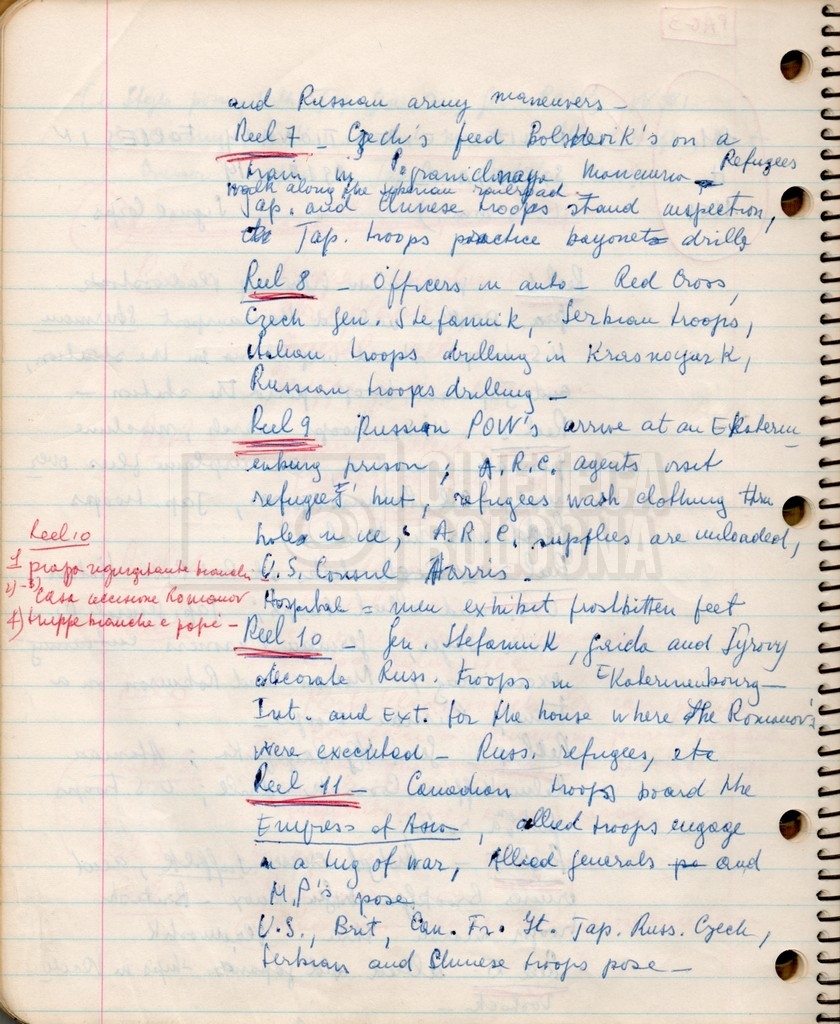 and Russian army maneuvers -
Reel 7 - Czech's feed Bolshevik's on a
train in Pogranichnaya Refugees
walk along the Syberian railroad
Jap. and Chinese troops stand inspection,
Jap. troops practice bayonets drills
Reel 8 - Officers in auto - Red Cross,
Czech Gen. Stefannik, Serbian troops,
Italian troops drilling in Krasnoyark,
Russian troops drilling -
Reel 9 Russian POW's arrive at an Ekaterin
enburg prison; A.R.C. agents visit
refugees' hut, refugees wash clothing thru
holes in ice, A.R.C. supplies are unloaded,
U.S. Consul Harris.
Hospital = men exhibit frostbitten feet
Reel 10 - Gen. Stefannik, Gaida and Syrovy
decorate Russ. troops in Ekaterinenbourg -
Int. and Ext. for the house where the Romanov's
were executed - Russ. refugees, etc
Reel 11 - Canadian troops board the
Empress of Asia, allied troops engage
in a tug of war, Allied generals and
M.P's pose.
U.S., Brit, Can. Fr. It. Jap. Russ. Czech,
Serbian and Chinese troops pose -
Reel 10
1
2) - 3) Casa uccisione Romanov
4) truppe bianche e popi -
CINETECA
BOLOGNA